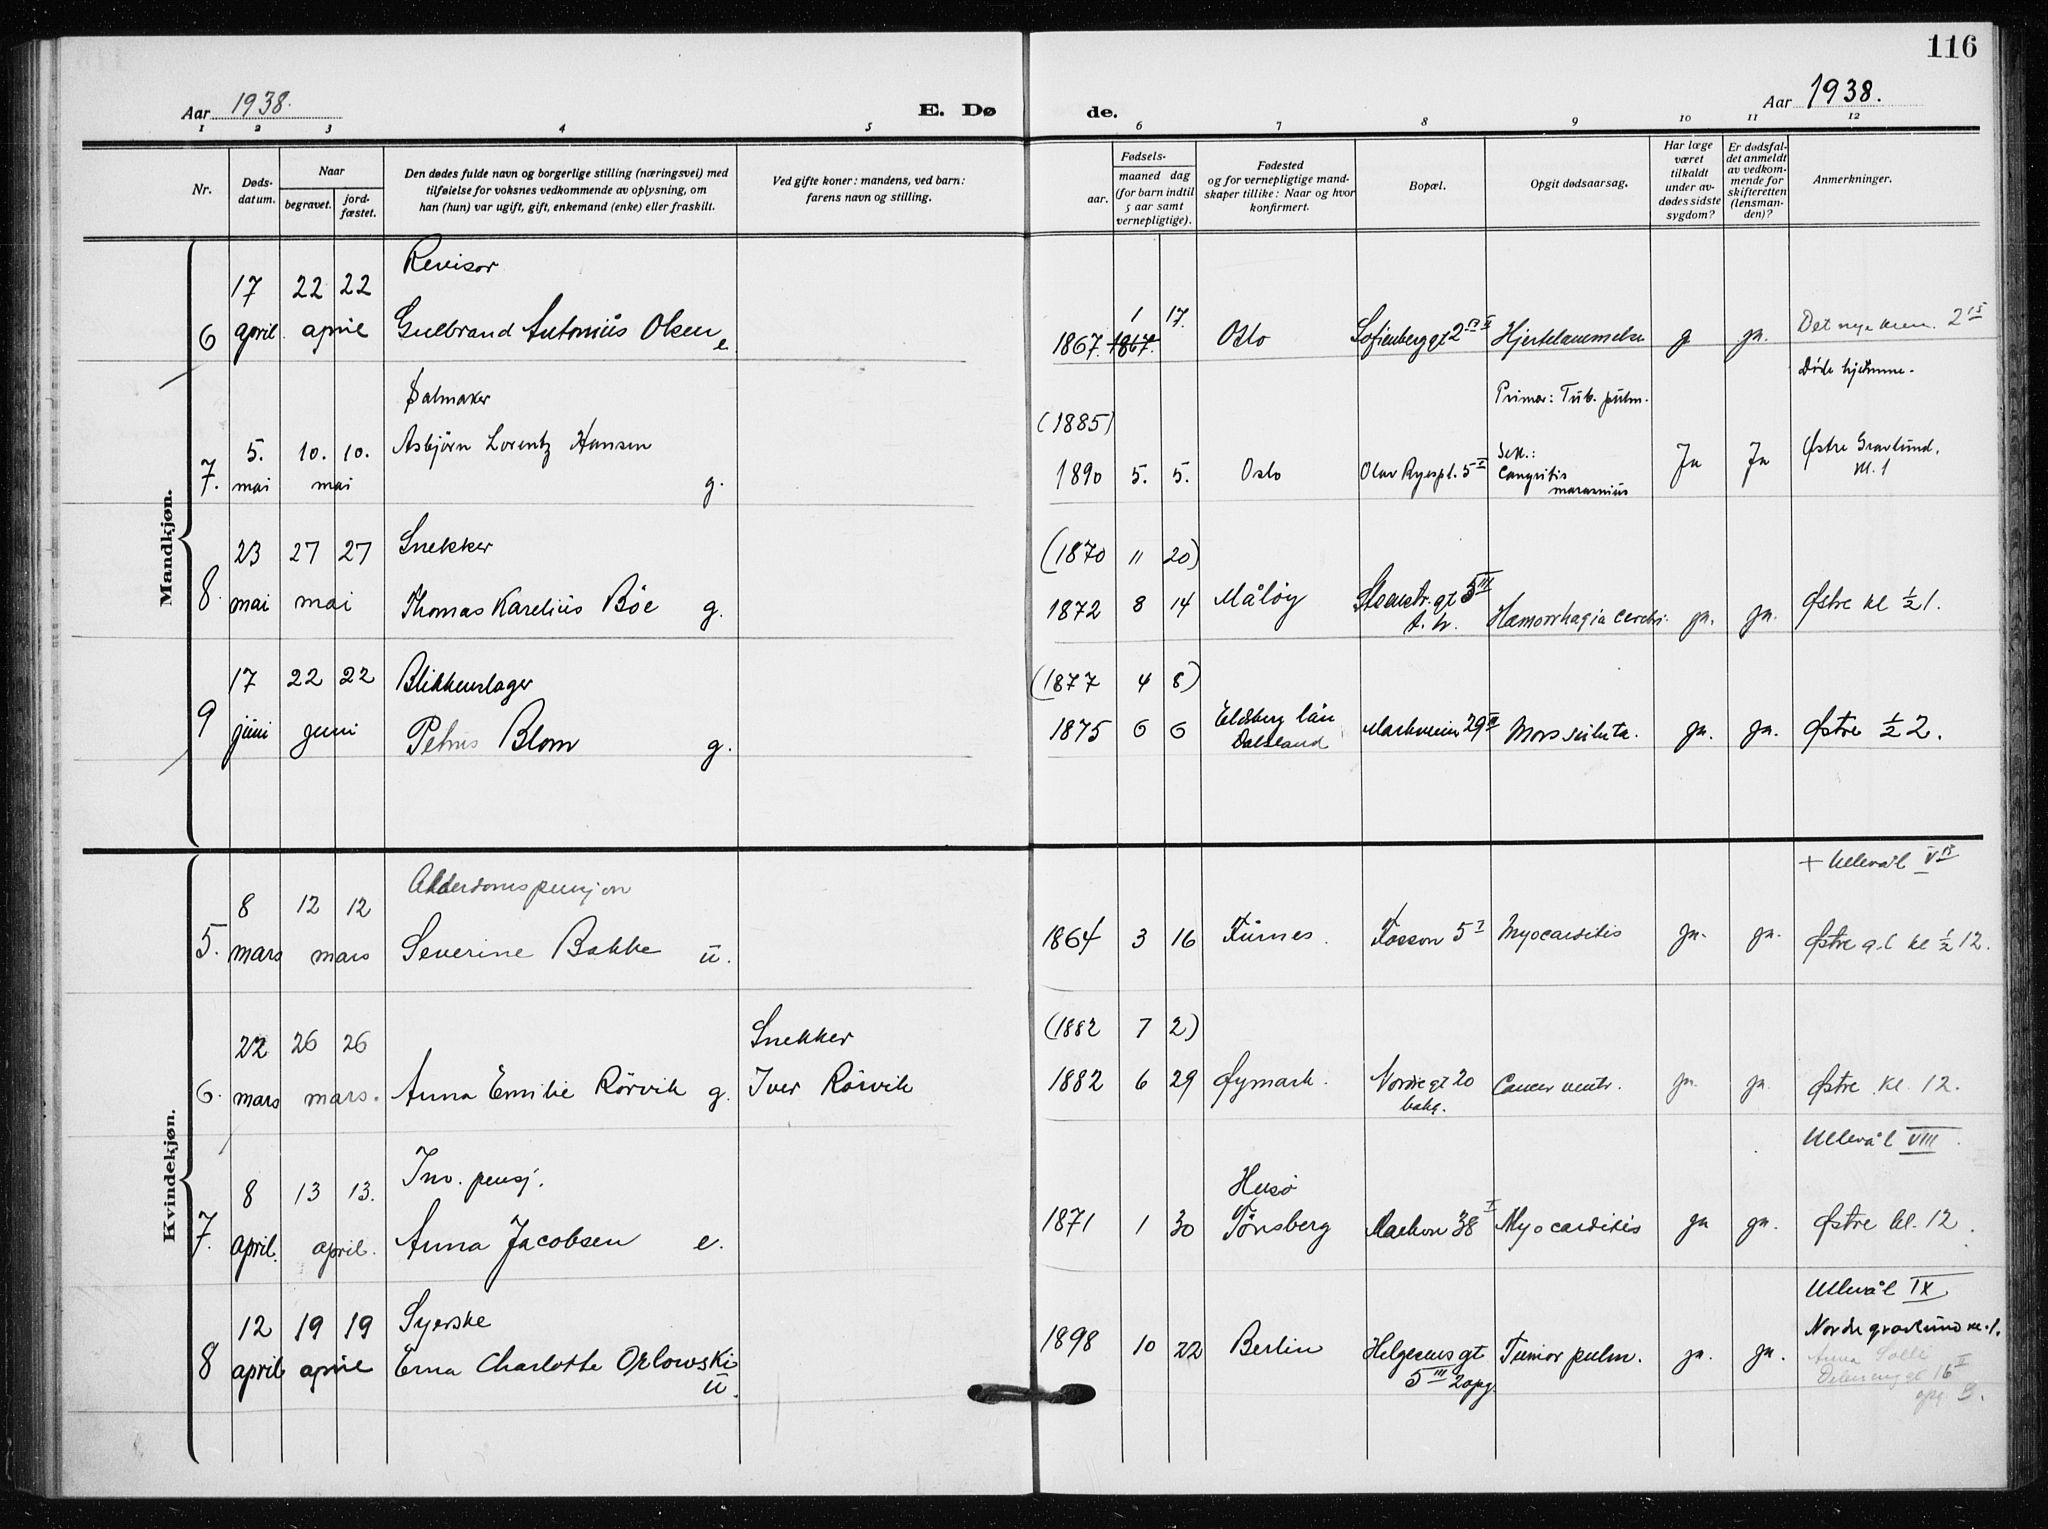 116
Aar 1938.
E. Dø de.
Aar 1938.
1 2 3 4 5 6 7 8 9 10 11 12
Nr.
Døds-
datum.
Naar
begravet.
jord-
fæstet.
Den dødes fulde navn og borgerlige stilling (næringsvei) med
tilføielse for voksnes vedkommende av oplysning, om
han (hun) var ugift, gift, enkemand (enke) eller fraskilt.
Ved gifte koner: mandens, ved barn:
farens navn og stilling.
Fødsels-
aar.
maaned dag
(for barn indtil
5 aar samt
vernepligtige).
Fødested
og for vernepligtige mand-
skaper tillike: Naar og hvor
konfirmert.
Bopæl.
Opgit dødsaarsag.
Har læge
været
tilkaldt
under av-
dødes sidste
sygdom?
Er dødsfal-
det anmeldt
av vedkom-
mende for
skifteretten
(lensman-
den)?
Anmerkninger.
Mandkjøn.
Revisor
17 22 22
1 17.
6 april april Gulbrand Antonius Olsen e 1867. 1867. Oslo Sofienberg gt 2 Hjertelammelse g ja. Det nye krem. 2 15
Døde hjemme.
Salmaker
Primær: Tub. pulm.
(1885)
5. 10. 10. Asbjörn Lorentz Hansen
7. mai mai g. 1890 5. 5. Oslo Olav Ryespl. 5 I Sek.: Ja Ja Østre Gravlund.
marasmus kl. 1
23 27 27 Snekker (1870 11 20)
8. mai mai Thomas Karelius Böe g. 1872 8 14 Måløy Steenstr. gt 5 III Hæmorrhagia cerebri. ja. ja. Østre kl ½ 1.
t. h.
17 22 22 Blikkenslager (1877 4 8)
9 juni juni Petrus Blom g. 1875 6 6 län Markveien 29 III Mors subita. ja. ja. Østre ½ 2.
Dalsland
Kvindekjøn.
+ Ullevål V
8 12 12 Alderdomspensjon
5. mars mars Severine Bakke u. 1864 3 16 Furnes. Fossvn 5 I Myocarditis ja. ja. Østre g.l kl ½ 12.
22 26 26 Snekker (1882 7 2)
6. mars mars. Anna Emilie Rörvik g. Iver Rörvik 1882 6 29 Øymark. Nordregt 20 Cancer ventr. ja. ja. Østre kl. 12.
bakg.
Ullevål VIII
8 13 13. Inv. pensj. Husö
7. april. april. Anna Jacobsen e. 1871 1 30 Tönsberg Markvn 38 I Myocarditis ja ja. Østre kl. 12.
Ullevål IX
12 19 19 Syerske
8 april april Erna Charlotte Orlowski u. 1898 10 22 Berlin Helgesens gt Tumor pulm. ja. ja. Nordre gravlund kl. 1.
5 III 2 opg.
Anna Solli
16 II
opg. B.